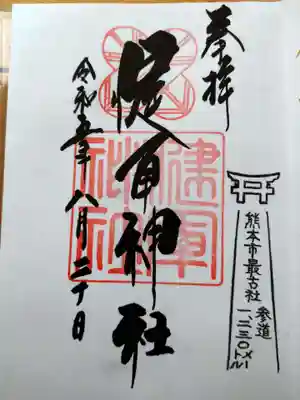 奉拝
健軍神社
令和五年八月二十日
健軍
神社
熊本市最古社
参道
一、二三〇メートル